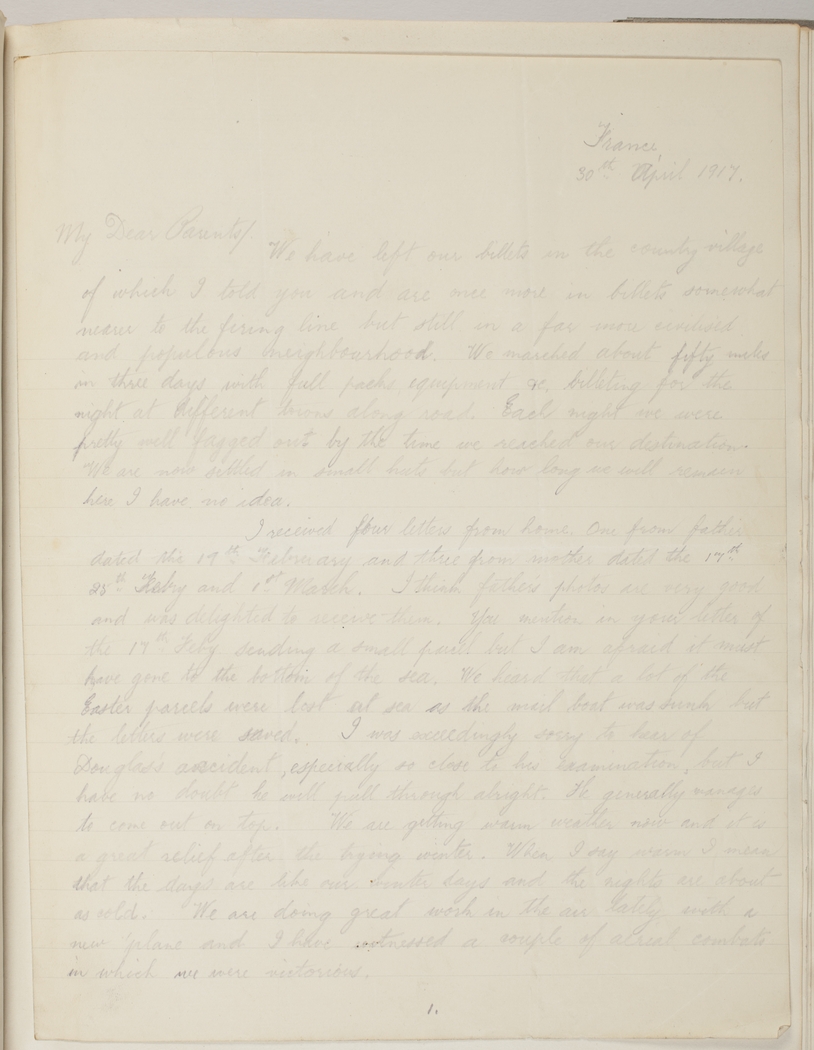 France,
30th April 1917.
My Dear Parents/.
We have left our billets in the country village
of which I told you and are once more in billets somewhat
nearer to the firing line but still in a far more civilised
and populous neighbourhood. We marched about fifty miles
in three days with full packs, equipment &c, billeting for the
night at different towns along road. Each night we were
pretty well fagged out by the time we reached our destination.
We are now settled in small huts but how long we will remain
here I have no idea.
I received four letters from home. One from father
dated the 19th February and three from mother dated the 17th
25th Feby and 1st March. I think father's photos are very good
and was delighted to receive them. You mention in your letter of
the 17th Feby sending a small parcel but I am afraid it must
have gone to the bottom of the sea. We heard that a lot of the
Easter parcels were lost at sea as the mail boat was sunk but
the letters were saved. I was exceedingly sorry to hear of
Douglas's accident, especially so close to his examination, but I
have no doubt he will pull through alright. He generally manages
to come out on top. We are getting warm weather now and it is
a great relief after the trying winter. When I say warm I mean
that the days are like our winter days and the nights are about
as cold. We are doing great work in the air lately with a
new 'plane and I have witnessed a couple of aerial combats
in which we were victorious.
1.